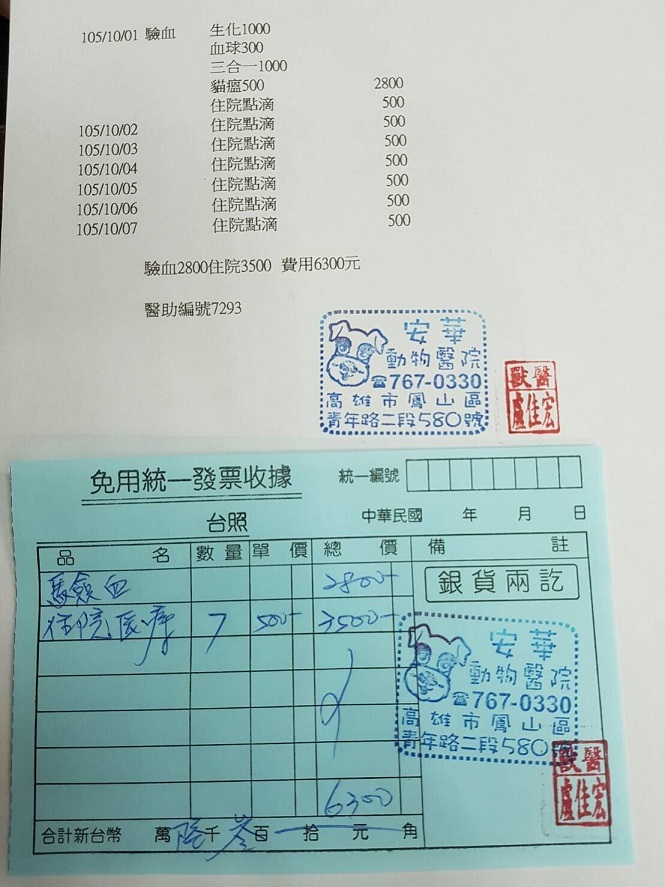 105/10/01 驗血 生化1000
血球300
三合一1000
貓瘟500 2800
住院點滴 500
105/10/02 住院點滴 500
105/10/03 住院點滴 500
105/10/04 住院點滴 500
105/10/05 住院點滴 500
105/10/06 住院點滴 500
105/10/07 住院點滴 500
驗血2800住院3500 費用6300元
醫助編號7293
安華
動物醫院
☎767-0330
高雄市鳳山區
青年路二段580號
獸醫
盧佳宏
免用統一發票收據
統一編號
台照
中華民國 年 月 日
品名 數量 單價 總價 備註
驗血 2800-
住院醫療 7 500- 3500-
銀貨兩訖
安華
動物醫院
☎767-0330
高雄市鳳山區
青年路二段580號
獸醫
盧佳宏
6300
合計新台幣 萬陸千參百 拾 元 角